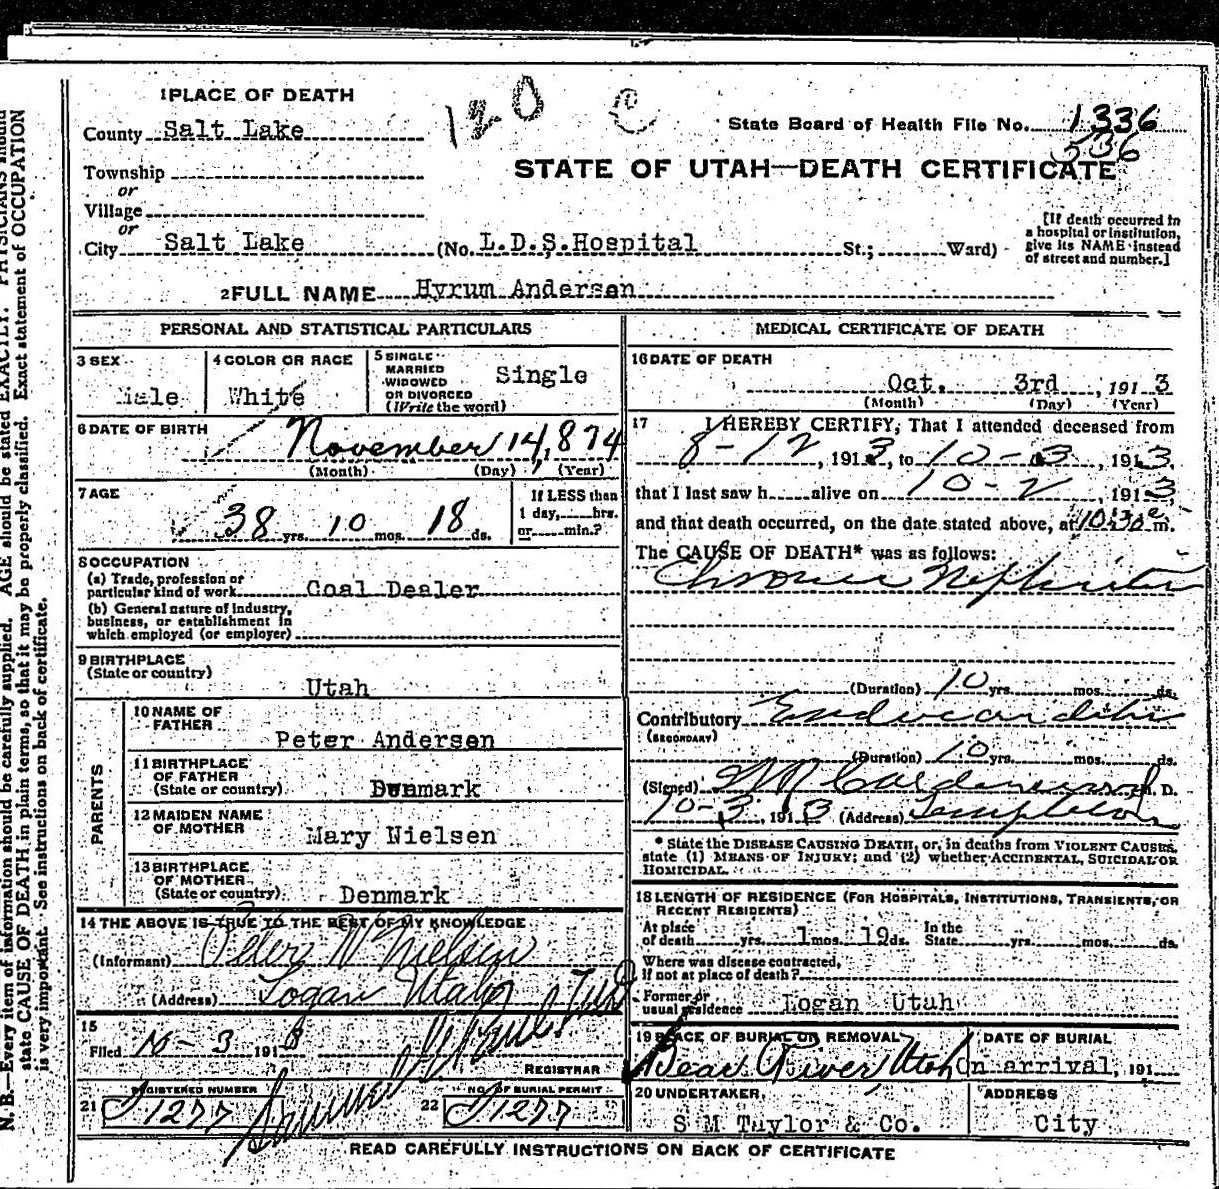 1 PLACE OF DEATH
120
County Salt Lake
State Board of Health File No. 1336
536
Township
STATE OF UTAH—DEATH CERTIFICATE
or
Village
or
City Salt Lake (No. L.D.S.Hospital St.; Ward)
[If death occurred in
a hospital or institution,
give its NAME instead
of street and number.]
2 FULL NAME Hyrum Andersen
PERSONAL AND STATISTICAL PARTICULARS
3 SEX
Male
4 COLOR OR RACE
White
5 SINGLE
MARRIED
WIDOWED
OR DIVORCED
(Write the word)
Single
6 DATE OF BIRTH
November 14, 874
(Month) (Day) (Year)
7 AGE
38 yrs. 10 mos. 18 ds.
If LESS than
1 day, hrs.
or min.?
8 OCCUPATION
(a) Trade, profession or
particular kind of work Coal Dealer
(b) General nature of industry,
business, or establishment in
which employed (or employer)
9 BIRTHPLACE
(State or country)
Utah
PARENTS
10 NAME OF
FATHER
Peter Andersen
11 BIRTHPLACE
OF FATHER
(State or country)
Denmark
12 MAIDEN NAME
OF MOTHER
Mary Nielsen
13 BIRTHPLACE
OF MOTHER
(State or country)
Denmark
14 THE ABOVE IS TRUE TO THE BEST OF MY KNOWLEDGE
(Informant) Peter N Nielsen
(Address) Logan Utah
15
Filed 10-3 191
REGISTRAR
REGISTERED NUMBER
21 1277
NO. OF BURIAL PERMIT
22 1277
MEDICAL CERTIFICATE OF DEATH
16 DATE OF DEATH
Oct. 3rd, 1913
(Month) (Day) (Year)
17 I HEREBY CERTIFY, That I attended deceased from
8-12, 1913, to 10-3, 1913,
that I last saw h alive on 10-2, 1913,
and that death occurred, on the date stated above, at 10:30 m.
The CAUSE OF DEATH* was as follows:
Chronic Nephritis
(Duration) 10 yrs. mos. ds.
Contributory Endocarditis
(SECONDARY)
(Duration) 10 yrs. ds.
(Signed) M. D.
10-3, 1913 (Address) Templeton
* State the DISEASE CAUSING DEATH, or, in deaths from VIOLENT CAUSES,
state (1) MEANS OF INJURY; and (2) whether ACCIDENTAL, SUICIDAL OR
HOMICIDAL.
18 LENGTH OF RESIDENCE (FOR HOSPITALS, INSTITUTIONS, TRANSIENTS, OR
RECENT RESIDENTS)
At place
of death yrs. 1 mos. 19 ds.
In the
State yrs. mos. ds.
Where was disease contracted,
if not at place of death?
Former or
usual residence Logan Utah
19 PLACE OF BURIAL OR REMOVAL
Bear River, Utah
DATE OF BURIAL
On arrival, 191
20 UNDERTAKER
S M Taylor & Co.
ADDRESS
City
READ CAREFULLY INSTRUCTIONS ON BACK OF CERTIFICATE
N. B.—Every item of information should be carefully supplied. AGE should be stated EXACTLY. PHYSICIANS should
state CAUSE OF DEATH in plain terms, so that it may be properly classified. Exact statement of OCCUPATION
is very important. See instructions on back of certificate.